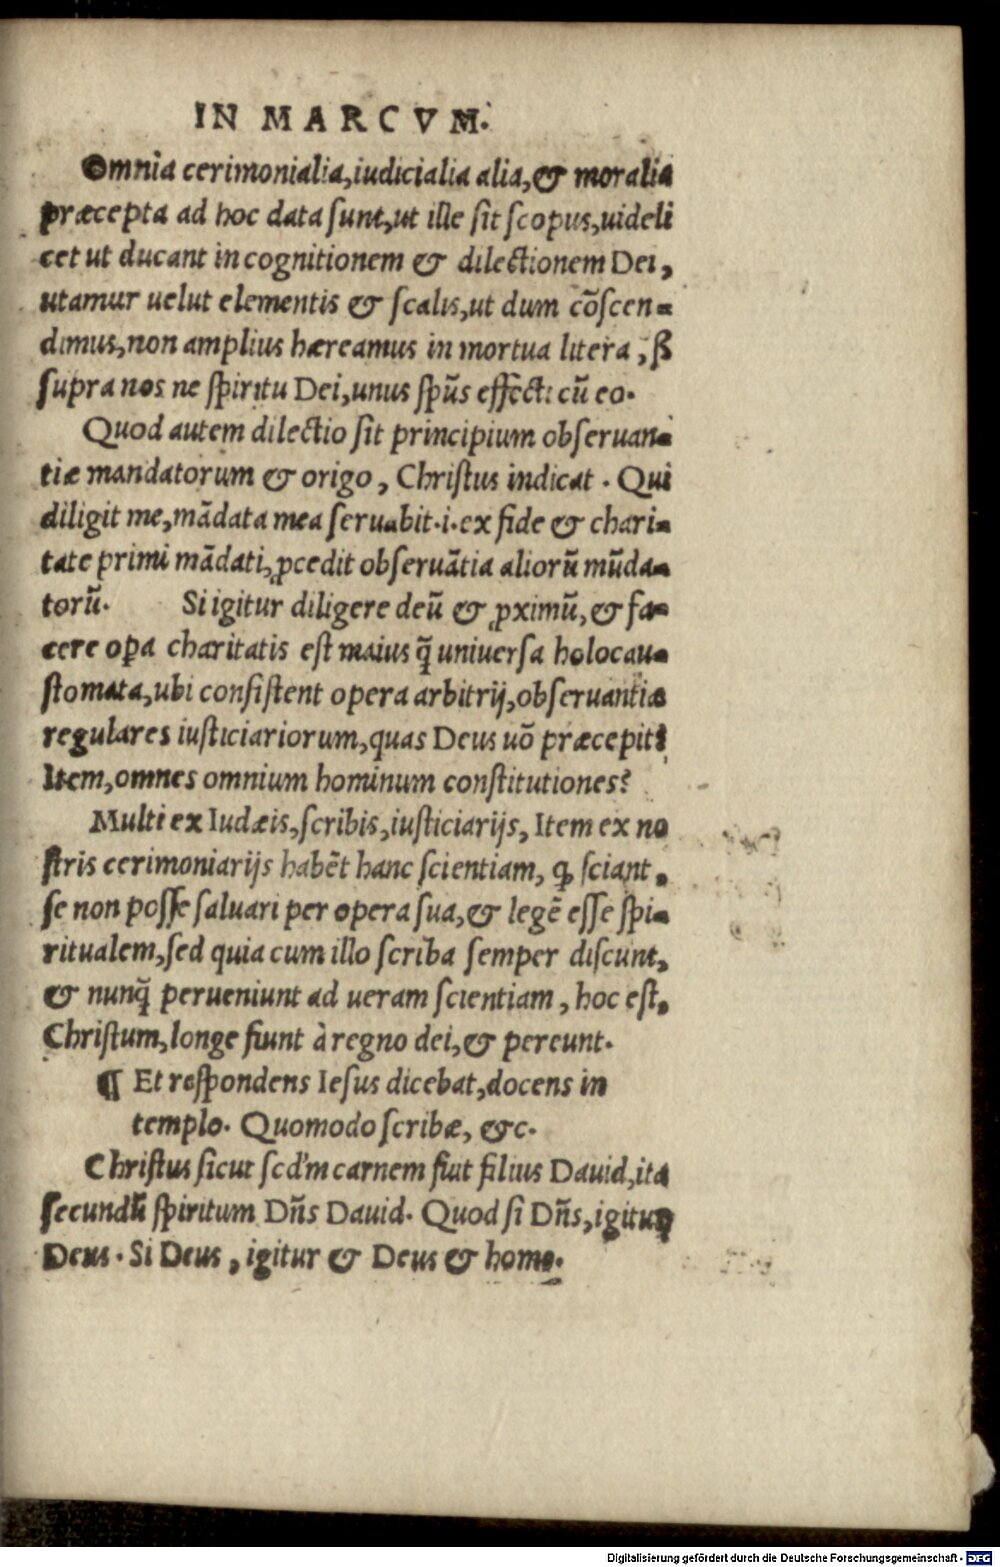 IN MARCVM.
Omnia cerimonialia, iudicialia alia, & moralia
præcepta ad hoc data sunt, ut ille sit scopus, uideli
cet ut ducant in cognitionem & dilectionem Dei,
utamur uelut elementis & scalis, ut dum cōscen-
dimus, non amplius hæreamus in mortua litera, sꝫ
supra nos ne spiritu Dei, unus spūs effecti cū eo.
Quod autem dilectio sit principium obseruan-
tiæ mandatorum & origo, Christus indicat. Qui
diligit me, mādata mea seruabit .i. ex fide & chari-
tate primi mādati, ꝓcedit obseruātia aliorū mūda-
torū. Si igitur diligere deū & ꝓximū, & fa-
cere oꝑa charitatis est maius q̃ uniuersa holocau-
stomata, ubi consistent opera arbitrij, obseruantiæ
regulares iusticiariorum, quas Deus uō præcepit?
Item, omnes omnium hominum constitutiones?
Multi ex Iudæis, scribis, iusticiarijs, Item ex no
stris cerimoniarijs habēt hanc scientiam, ꝙ sciant,
se non posse saluari per opera sua, & legē esse spi-
ritualem, sed quia cum illo scriba semper discunt,
& nunq̃ perueniunt ad ueram scientiam, hoc est,
Christum, longe fiunt à regno dei, & pereunt.
¶ Et respondens Iesus dicebat, docens in
templo. Quomodo scribæ, &c.
Christus sicut scd'm carnem fiut filius Dauid, ita
secundū spiritum Dn̄s Dauid. Quod si Dn̄s, igitur
Deus. Si Deus, igitur & Deus & homo.
Digitalisierung gefördert durch die Deutsche Forschungsgemeinschaft - DFG